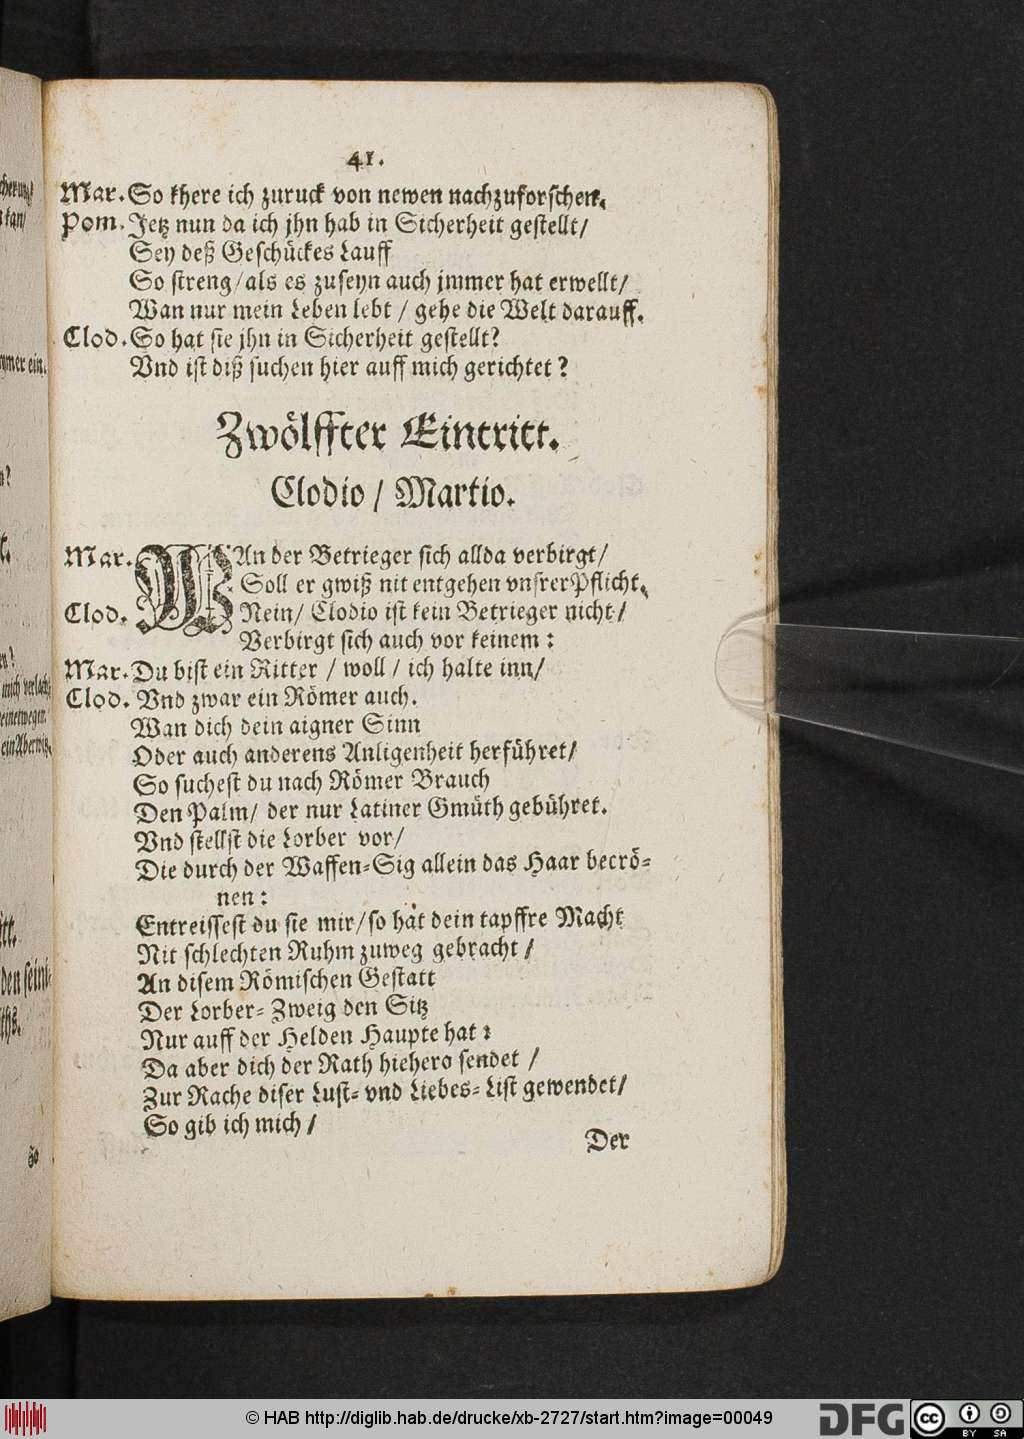 41.
Mar. So khere ich zuruck von newen nachzuforschen.
Pom. Jetz nun da ich jhn hab in Sicherheit gestellt/
Sey deß Geschückes Lauff
So streng/als es zuseyn auch jmmer hat erwellt/
Wan nur mein Leben lebt / gehe die Welt darauff.
Clod. So hat sie jhn in Sicherheit gestellt?
Vnd ist diß suchen hier auff mich gerichtet?
Zwölffter Eintritt.
Clodio / Martio.
Mar. WAn der Betrieger sich allda verbirgt/
Soll er gwiß nit entgehen vnsrer Pflicht.
Clod. Nein/ Clodio ist kein Betrieger nicht/
Verbirgt sich auch vor keinem:
Mar. Du bist ein Ritter / woll / ich halte inn/
Clod. Vnd zwar ein Römer auch.
Wan dich dein aigner Sinn
Oder auch anderens Anligenheit herführet/
So suchest du nach Römer Brauch
Den Palm/ der nur Latiner Gmüth gebühret.
Vnd stellst die Lorber vor/
Die durch der Waffen-Sig allein das Haar becrö-
nen:
Entreissest du sie mir/so hat dein tapffre Macht
Nit schlechten Ruhm zuweg gebracht/
An disem Römischen Gestatt
Der Lorber-Zweig den Sitz
Nur auff der Helden Haupte hat:
Da aber dich der Rath hiehero sendet /
Zur Rache diser Lust- vnd Liebes-List gewendet/
So gib ich mich/
Der
mmer ein.
den seini-
ein Aberwitz.
So
© HAB http://diglib.hab.de/drucke/xb-2727/start.htm?image=00049
DFG
cc
BY SA